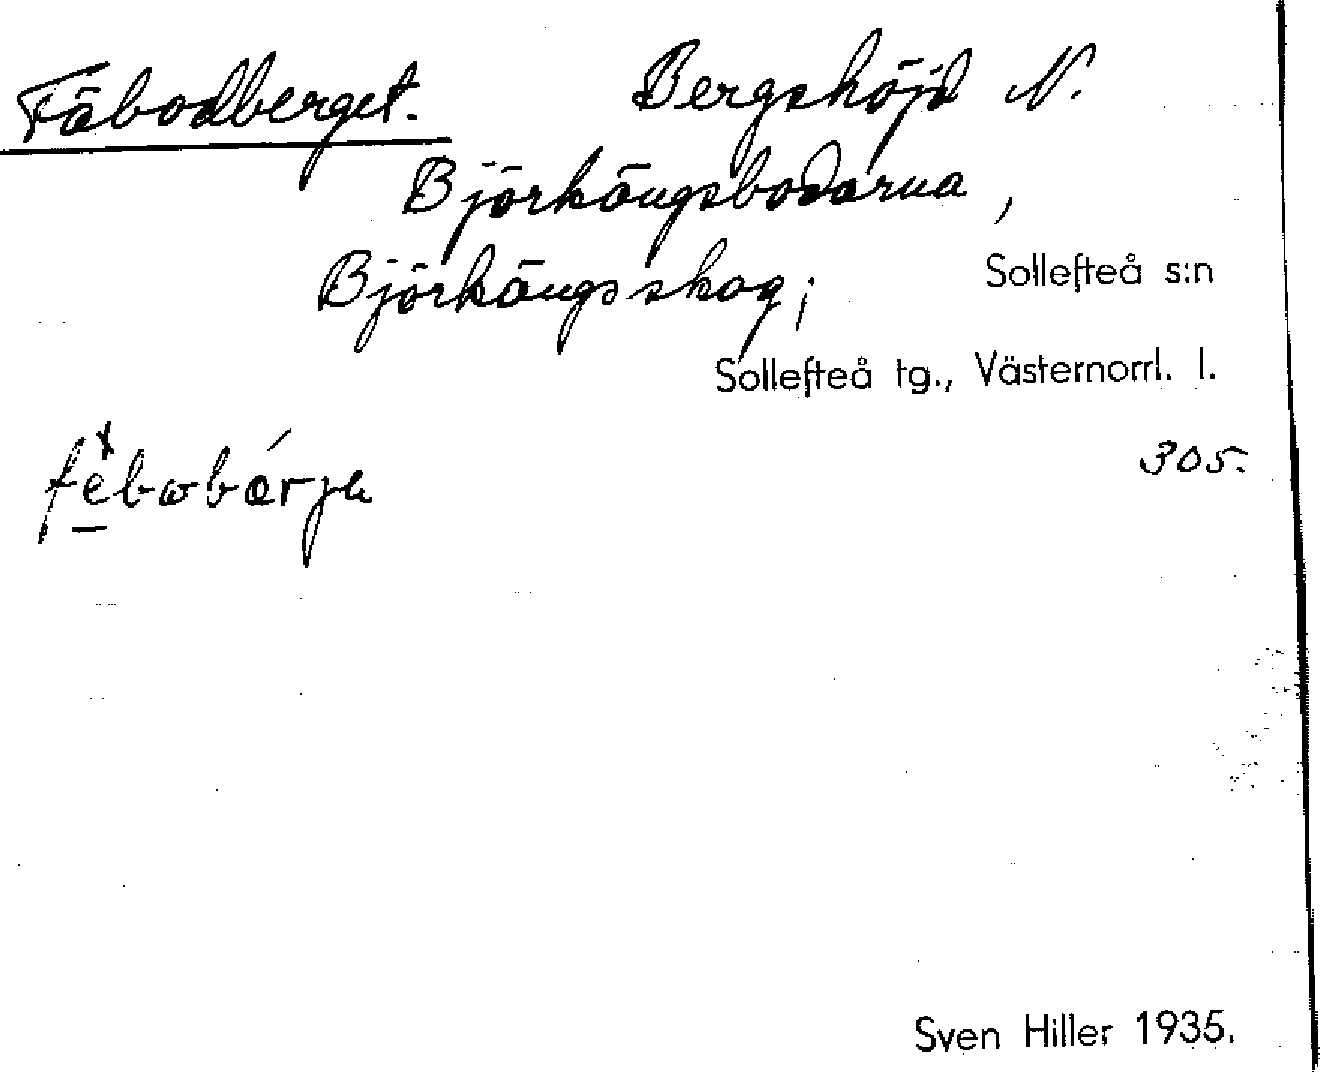 Fäbodberget. Bergshöjd N.
Björkängsbodarna,
Björkängsskog; Sollefteå s:n
Sollefteå tg., Västernorrl. l.
305.
Sven Hiller 1935.